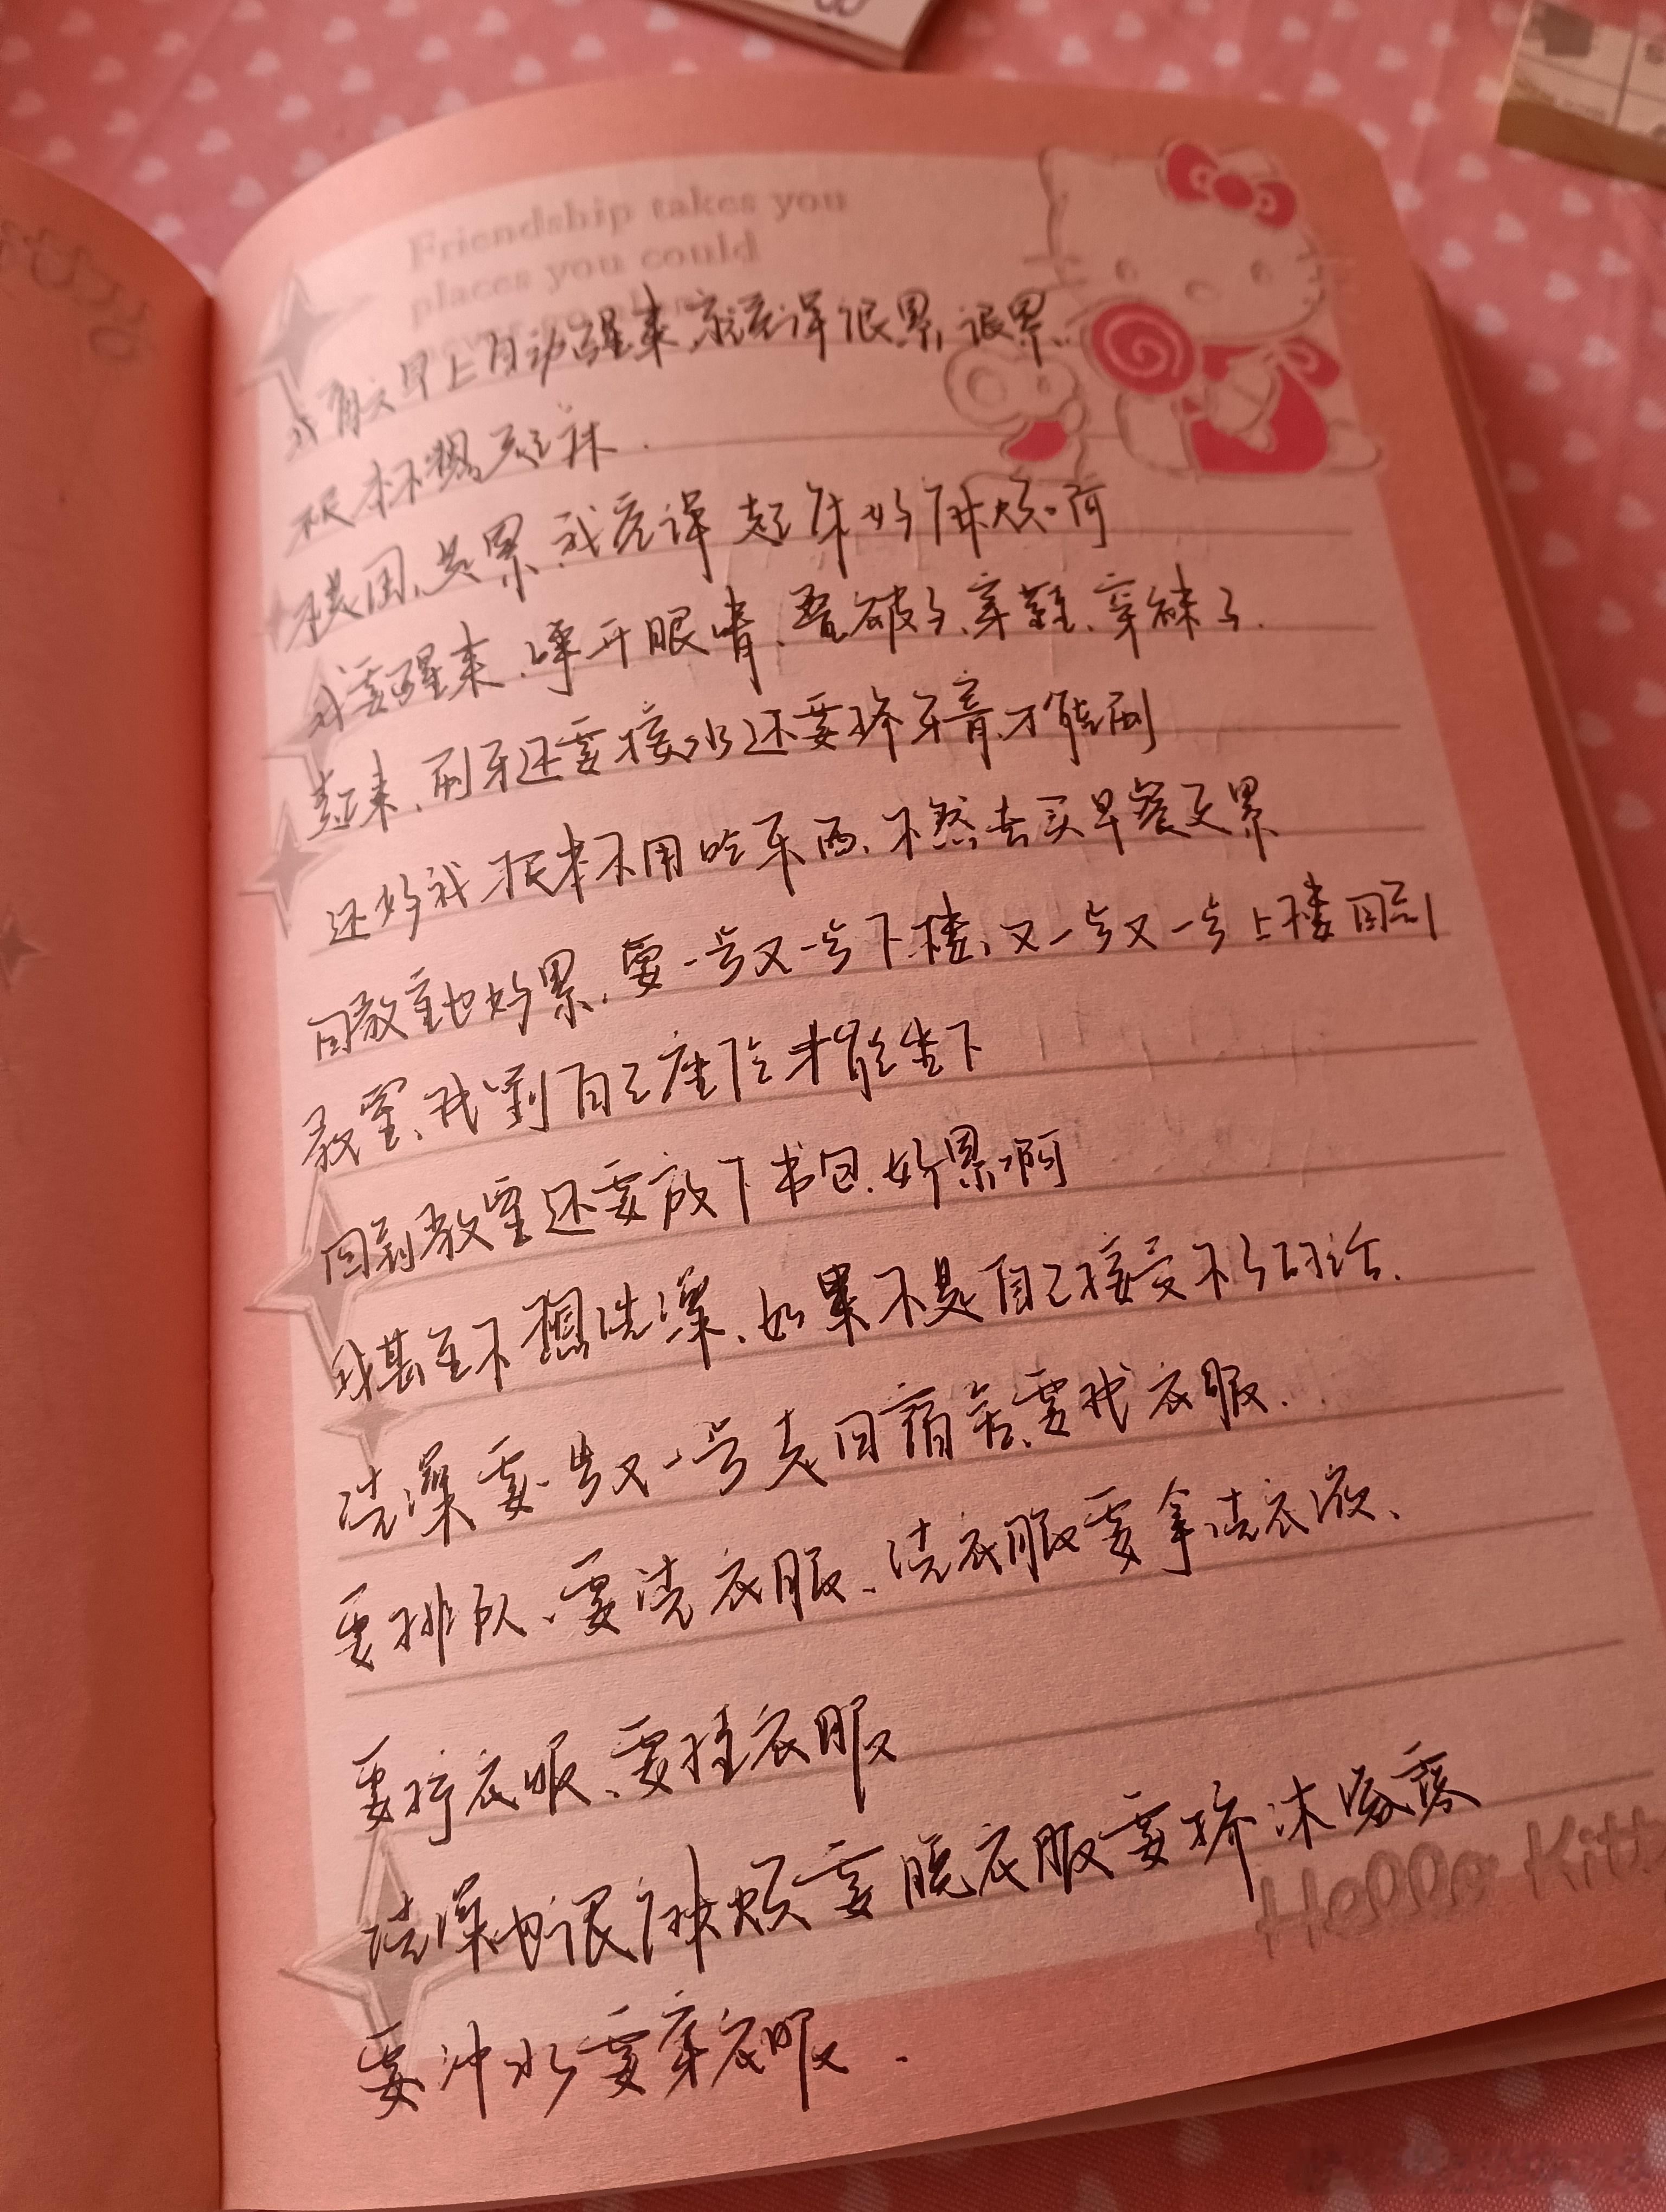 Friendship takes you
places you could
我有天早上自动醒来,就觉得很累,很累.
根本不想起床.
不是困、是累,我觉得起床好麻烦啊
我要醒来、睁开眼睛、叠被子、穿鞋、穿袜子.
起来、刷牙还要接水还要挤牙膏才能刷
还好我根本不用吃东西、不然去买早餐更累
回教室也好累,要一步又一步下楼、又一步又一步上楼回到
教室、找到自己座位才能坐下
回到教室还要放下书包.好累啊
我甚至不想洗澡、如果不是自己接受不了的话.
洗澡要一步又一步走回宿舍、要找衣服.
要排队、要洗衣服、洗衣服要拿洗衣液、
要拧衣服、要挂衣服
洗澡也很麻烦要脱衣服要挤沐浴露
要冲水要穿衣服.
Hello Kitt